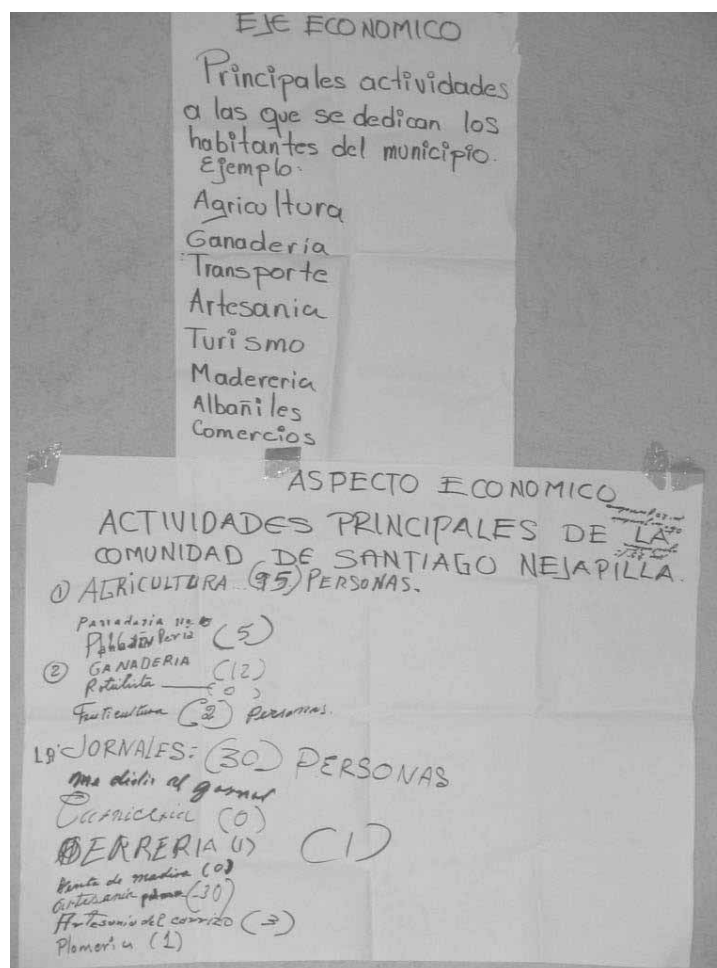 EJE ECONOMICO
Principales actividades
a las que se dedican los
habitantes del municipio.
Ejemplo.
Agricultura
Ganadería
Transporte
Artesania
Turismo
Madereria
Albañiles
Comercios
ASPECTO ECONOMICO
ACTIVIDADES PRINCIPALES DE LA
COMUNIDAD DE SANTIAGO NEJAPILLA.
① AGRICULTURA (95) PERSONAS.
Panadaria
(5)
② GANADERIA (12)
(0)
Fruticultura (2) Personas.
JORNALES: (30) PERSONAS
Carniceria (0)
HERRERIA (1) (1)
Venta de madera (0)
artesania (30)
Artesania del carrizo (3)
Plomeria (1)